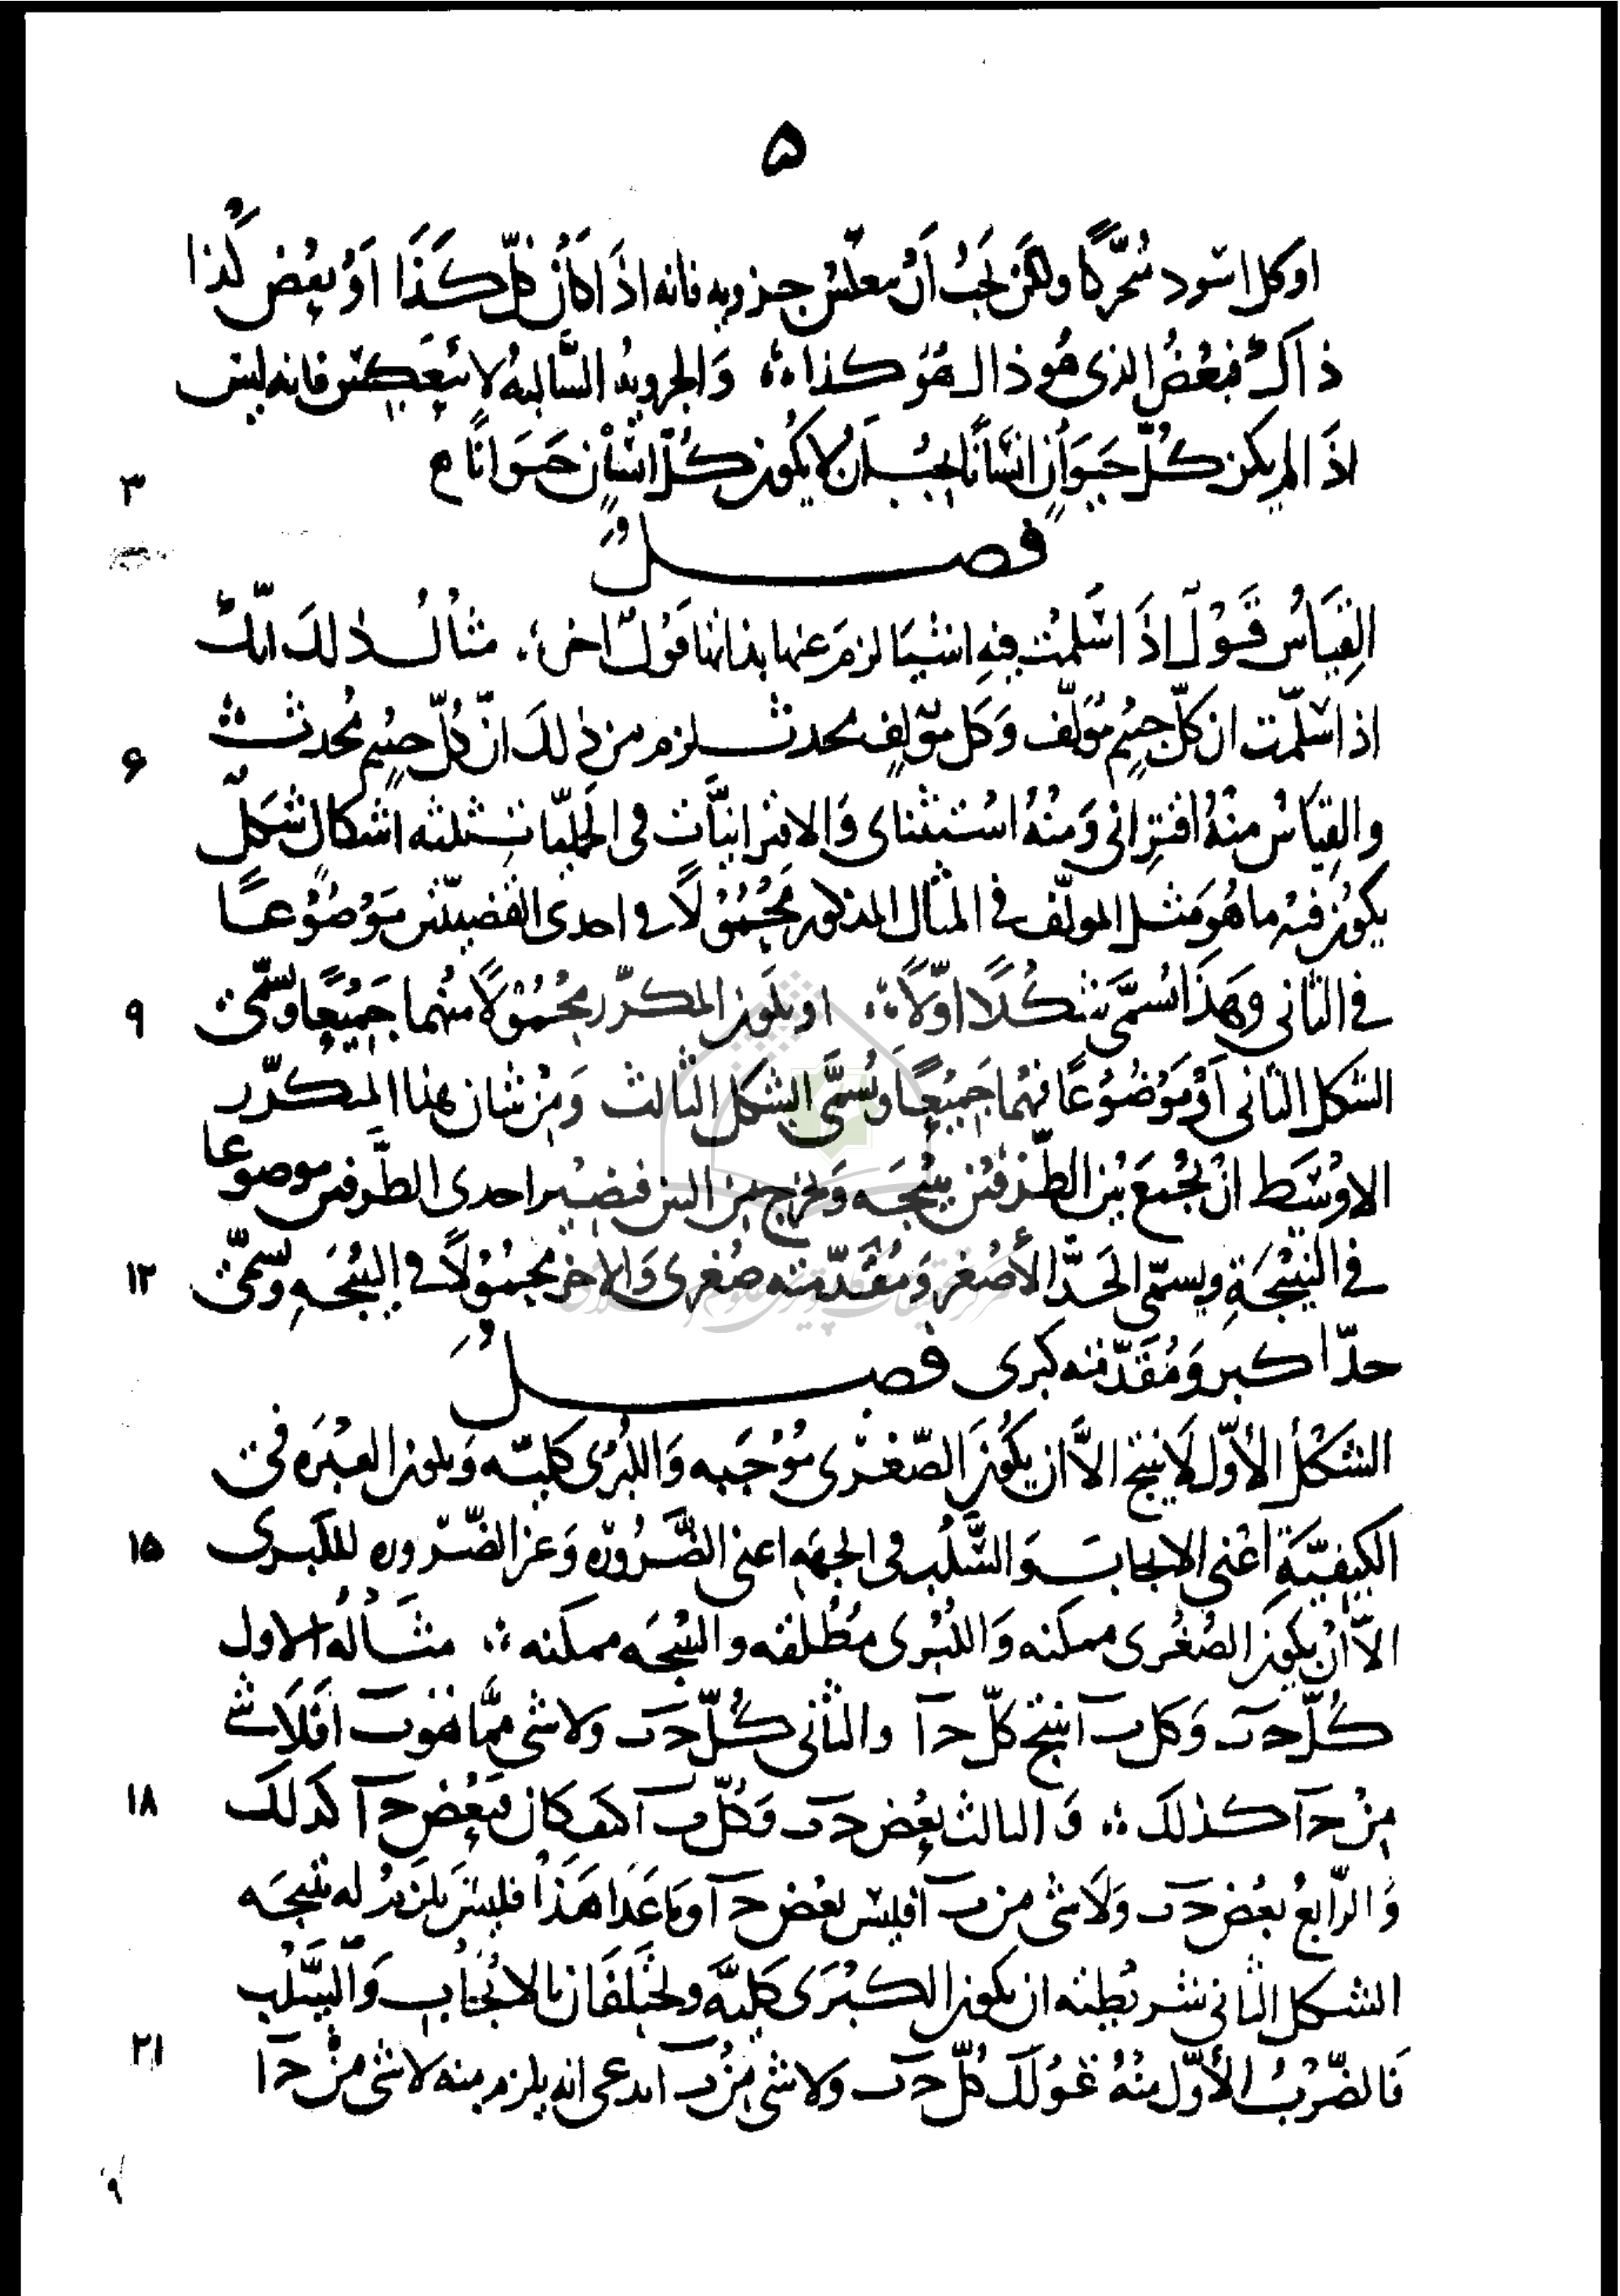 ۵
او كل اسود متحركا ولكن يجب أن ينعكس جزويه فانه اذا كان كل كذا أو بعض كذا
ذاك فبعض الذى هو ذاك هو كذا والجزويه السالبه لا ينعكس فانه ليس
اذا لم يكن كل حيوان انسانا يجب ان لا يكون كل انسان حيوانا
۳
فصل
القياس قول اذا سلمت فيه اشيا لزم عنها بذاتها قول اخر مثال ذلك انك
اذا سلمت ان كل جسم مؤلف وكل مؤلف محدث لزم من ذلك ان كل جسم محدث
۶
والقياس منه اقترانى ومنه استثناى والاقترانيات فى الحمليات ثلثه اشكال شكل
يكون فيه ما هو مثل المولف فى المثال المذكور محمولا فى احدى القضيتين موضوعا
فى الثانى وهذا يسمى شكلا اولا او يكون المكرر محمولا فيهما جميعا ويسمى
۹
الشكل الثانى أو موضوعا فيهما جميعا ويسمى الشكل الثالث ومن شان هذا المكرر
الاوسط ان يجمع بين الطرفين بنتيجه ويخرج من البين فيصير احدى الطرفين موضوعا
فى النتيجة ويسمى الحد الأصغر ومقدمته صغرى والاخر محمولا فى النتيجه ويسمى
۱۲
حدا اكبر ومقدمته كبرى فصل
الشكل الأول لا ينتج الا ان يكون الصغرى موجبه والكبرى كليه ويكون العبره فى
الكيفية أعنى الايجاب والسلب فى الجهه اعنى الضروره وغير الضروره للكبرى
۱۵
الا أن يكون الصغرى ممكنه والكبرى مطلقه والنتيجه ممكنه مثاله الاول
كل ج ب وكل ب آ ينتج كل ج آ والثانى كل ج ب ولا شى مما هو ب آ فلا شى
من ج آ كذلك والثالث بعض ج ب وكل ب آ كيف كان فبعض ج آ كذلك
۱۸
والرابع بعض ج ب ولا شى من ب آ فليس بعض ج آ وما عدا هذا فليس يلزم له نتيجه
الشكل الثانى شريطته ان يكون الكبرى كليه ويختلفان بالايجاب والسلب
فالضرب الأول منه قولك كل ج ب ولا شى من ا ب ادعى انه يلزم منه لا شى من ج آ
۲۱